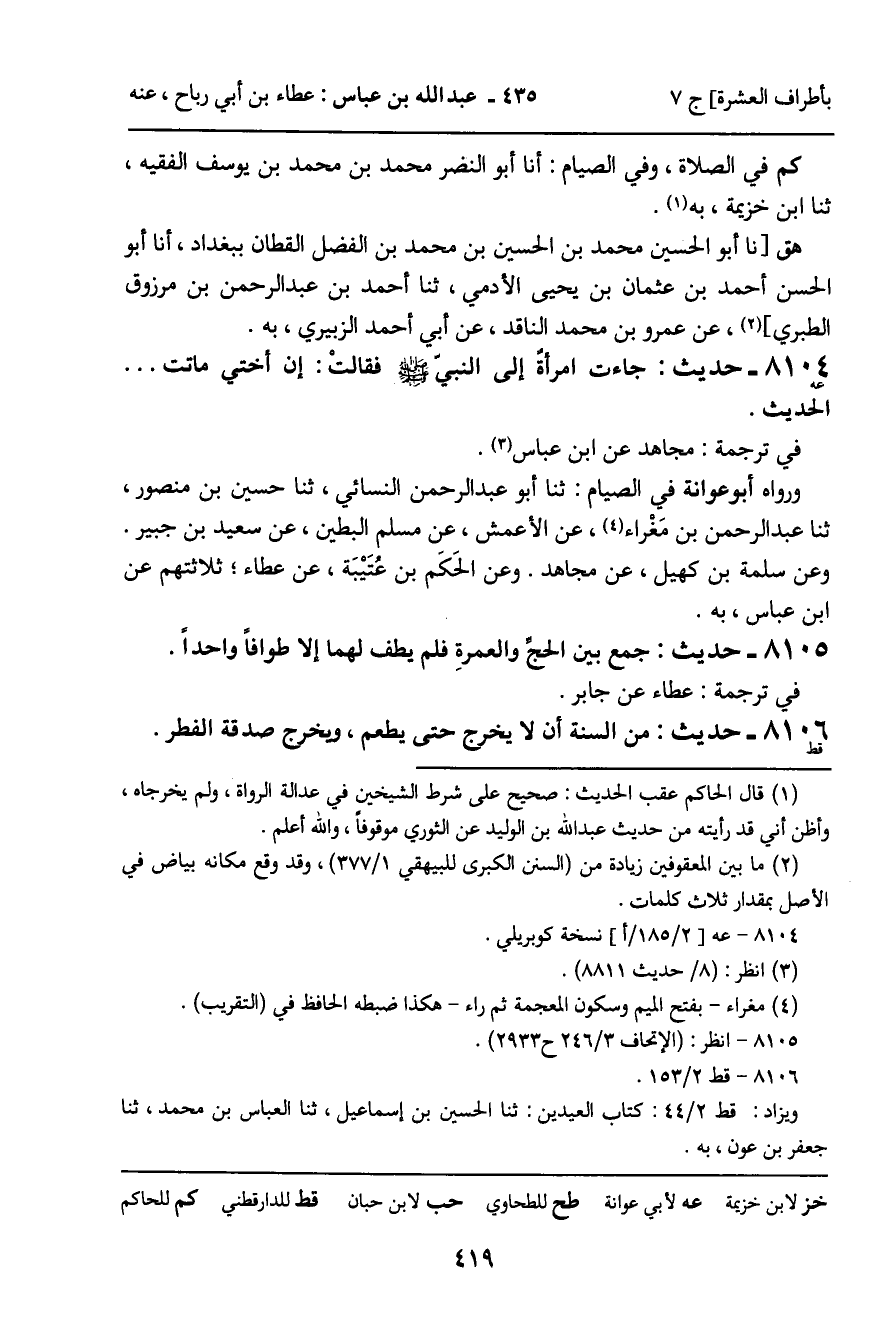 بأطراف العشرة] ج ٧ ٤٣٥ ـ عبدالله بن عباس : عطاء بن أبي رباح ، عنه
كم في الصلاة ، وفي الصيام : أنا أبو النضر محمد بن محمد بن يوسف الفقيه ،
ثنا ابن خزيمة ، به(١) .
هق [نا أبو الحسين محمد بن الحسين بن محمد بن الفضل القطان ببغداد ، أنا أبو
الحسن أحمد بن عثمان بن يحيى الأدمي ، ثنا أحمد بن عبدالرحمن بن مرزوق
الطبري](٢) ، عن عمرو بن محمد الناقد ، عن أبي أحمد الزبيري ، به .
٨١٠٤ ـ حديث : جاءت امرأةٌ إلى النبيّ ﷺ فقالتْ : إن أختي ماتت ...
عه
الحديث .
في ترجمة : مجاهد عن ابن عباس(٣) .
ورواه أبوعوانة في الصيام : ثنا أبو عبدالرحمن النسائي ، ثنا حسين بن منصور ،
ثنا عبدالرحمن بن مَغْراء(٤) ، عن الأعمش ، عن مسلم البطين ، عن سعيد بن جبير .
وعن سلمة بن كهيل ، عن مجاهد . وعن الحَكَم بن عُتَيْبَة ، عن عطاء ؛ ثلاثتهم عن
ابن عباس ، به .
٨١٠٥ ـ حديث : جمع بين الحجِّ والعمرةِ فلم يطف لهما إلا طوافاً واحداً .
في ترجمة : عطاء عن جابر .
٨١٠٦ ـ حديث : من السنة أن لا يخرج حتى يطعم ، ويخرج صدقة الفطر .
قط
(١) قال الحاكم عقب الحديث : صحيح على شرط الشيخين في عدالة الرواة ، ولم يخرجاه ،
وأظن أني قد رأيته من حديث عبدالله بن الوليد عن الثوري موقوفاً ، والله أعلم .
(٢) ما بين المعقوفين زيادة من (السنن الكبرى للبيهقي ٣٧٧/١) ، وقد وقع مكانه بياض في
الأصل بمقدار ثلاث كلمات .
٨١٠٤ – عه [ ١٨٥/٢/أ ] نسخة كوبريلي .
(٣) انظر : (٨/ حديث ٨٨١١) .
(٤) مغراء – بفتح الميم وسكون المعجمة ثم راء – هكذا ضبطه الحافظ في (التقريب) .
٨١٠٥ – انظر : (الإتحاف ٢٤٦/٣ ح٢٩٣٣) .
٨١٠٦ – قط ١٥٣/٢ .
ويزاد : قط ٤٤/٢ : كتاب العيدين : ثنا الحسين بن إسماعيل ، ثنا العباس بن محمد ، ثنا
جعفر بن عون ، به .
خز لابن خزيمة عه لأبي عوانة طح للطحاوي حب لابن حبان قط للدارقطني كم للحاكم
٤١٩